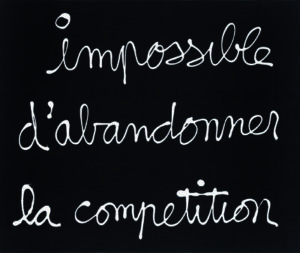 impossible
d'abandonner
la competition